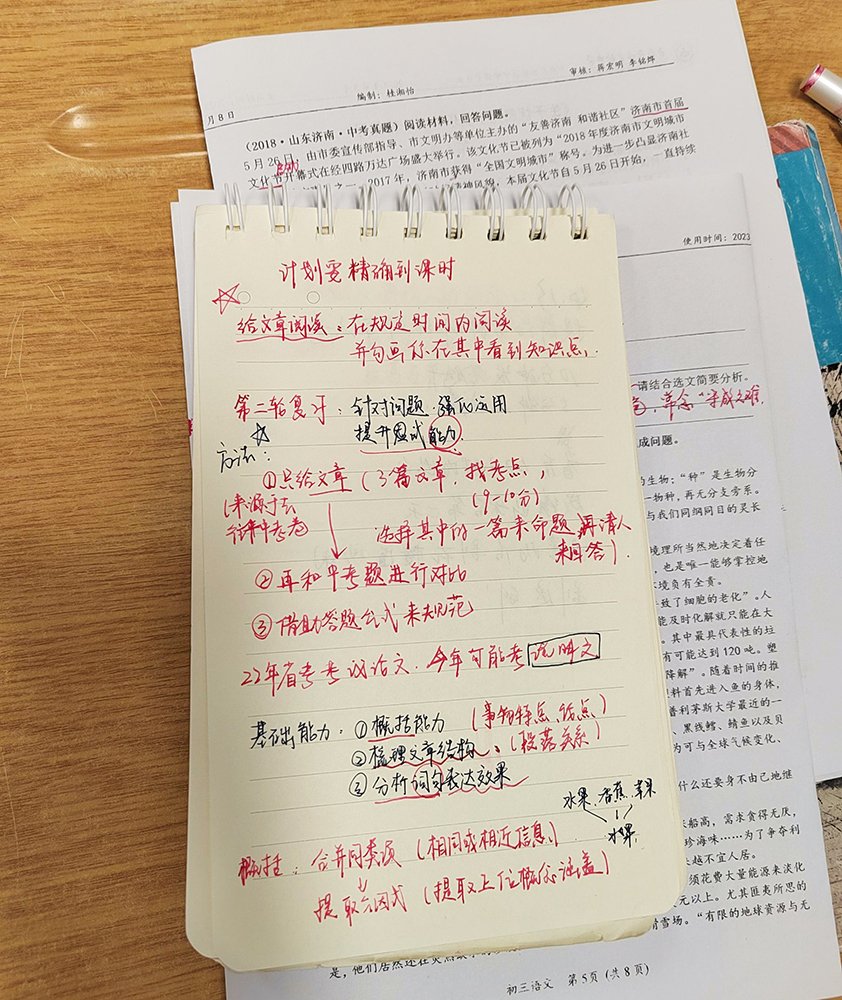 月 8 日
编制：桂湘怡
审核：蒋宏明 李铭烨
（2018·山东济南·中考真题）阅读材料，回答问题。
5 月 26 日，由市委宣传部指导、市文明办等单位主办的“友善济南 和谐社区”济南市首届
文化节开幕式在经四路万达广场盛大举行。该文化节已被列为“2018 年度济南市文明城市
之一。2017 年，济南市获得“全国文明城市”称号。为进一步凸显济南社
精神风貌，本届文化节自 5 月 26 日开始，一直持续
使用时间：2023
计划要精确到课时
给文章阅读：在规定时间内阅读
并勾画你在其中看到知识点.
第二轮复习：针对问题.强化运用
提升应试能力.
方法：
①只给文章（3篇文章，找考点，
(来源于去
往年中考卷
(9-10分)
选择其中的一篇来命题,再请人
来回答).
②再和中考题进行对比
③借助答题公式来规范
22年省考考议论文.今年可能考说明文
基础能力：①概括能力 （事物特点、论点）
②梳理文章结构、（段落关系）
③分析词句表达效果
水果、香蕉、苹果
水果
概括：合并同类项（相同或相近信息）
提取公因式（提取上位概念涵盖）
请结合选文简要分析。
成问题。
的生物；“种”是生物分
一物种，再无分支旁系。
与我们同纲同目的灵长
境理所当然地决定着任
，也是唯一能够掌控地
环境负有全责。
导致了细胞的老化”。人
能及时化解就只能在大
。其中最具代表性的垃
有可能达到 120 吨。塑
降解”。随着时间的推
料首先进入鱼的身体，
普利茅斯大学最近的一
、黑线鳕、鲭鱼以及贝
为可与全球气候变化、
什么还要身不由己地继
涨船高，需求贪得无厌，
珍海味……为了争夺利
越不宜人居。
须花费大量能源来淡化
元以上。尤其匪夷所思的
滑雪场。“有限的地球资源与无
是，他们居然还在
初三语文 第 5 页 (共 8 页)